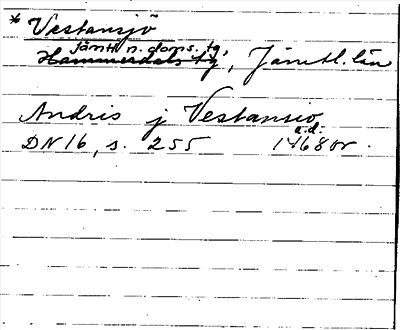 * Vestansjö
Jämtl. n. doms. tg,
Hammerdals tg, Jämtl. län
Andris j Vestansio
a.d.
DN 16, s. 255 1468 or.